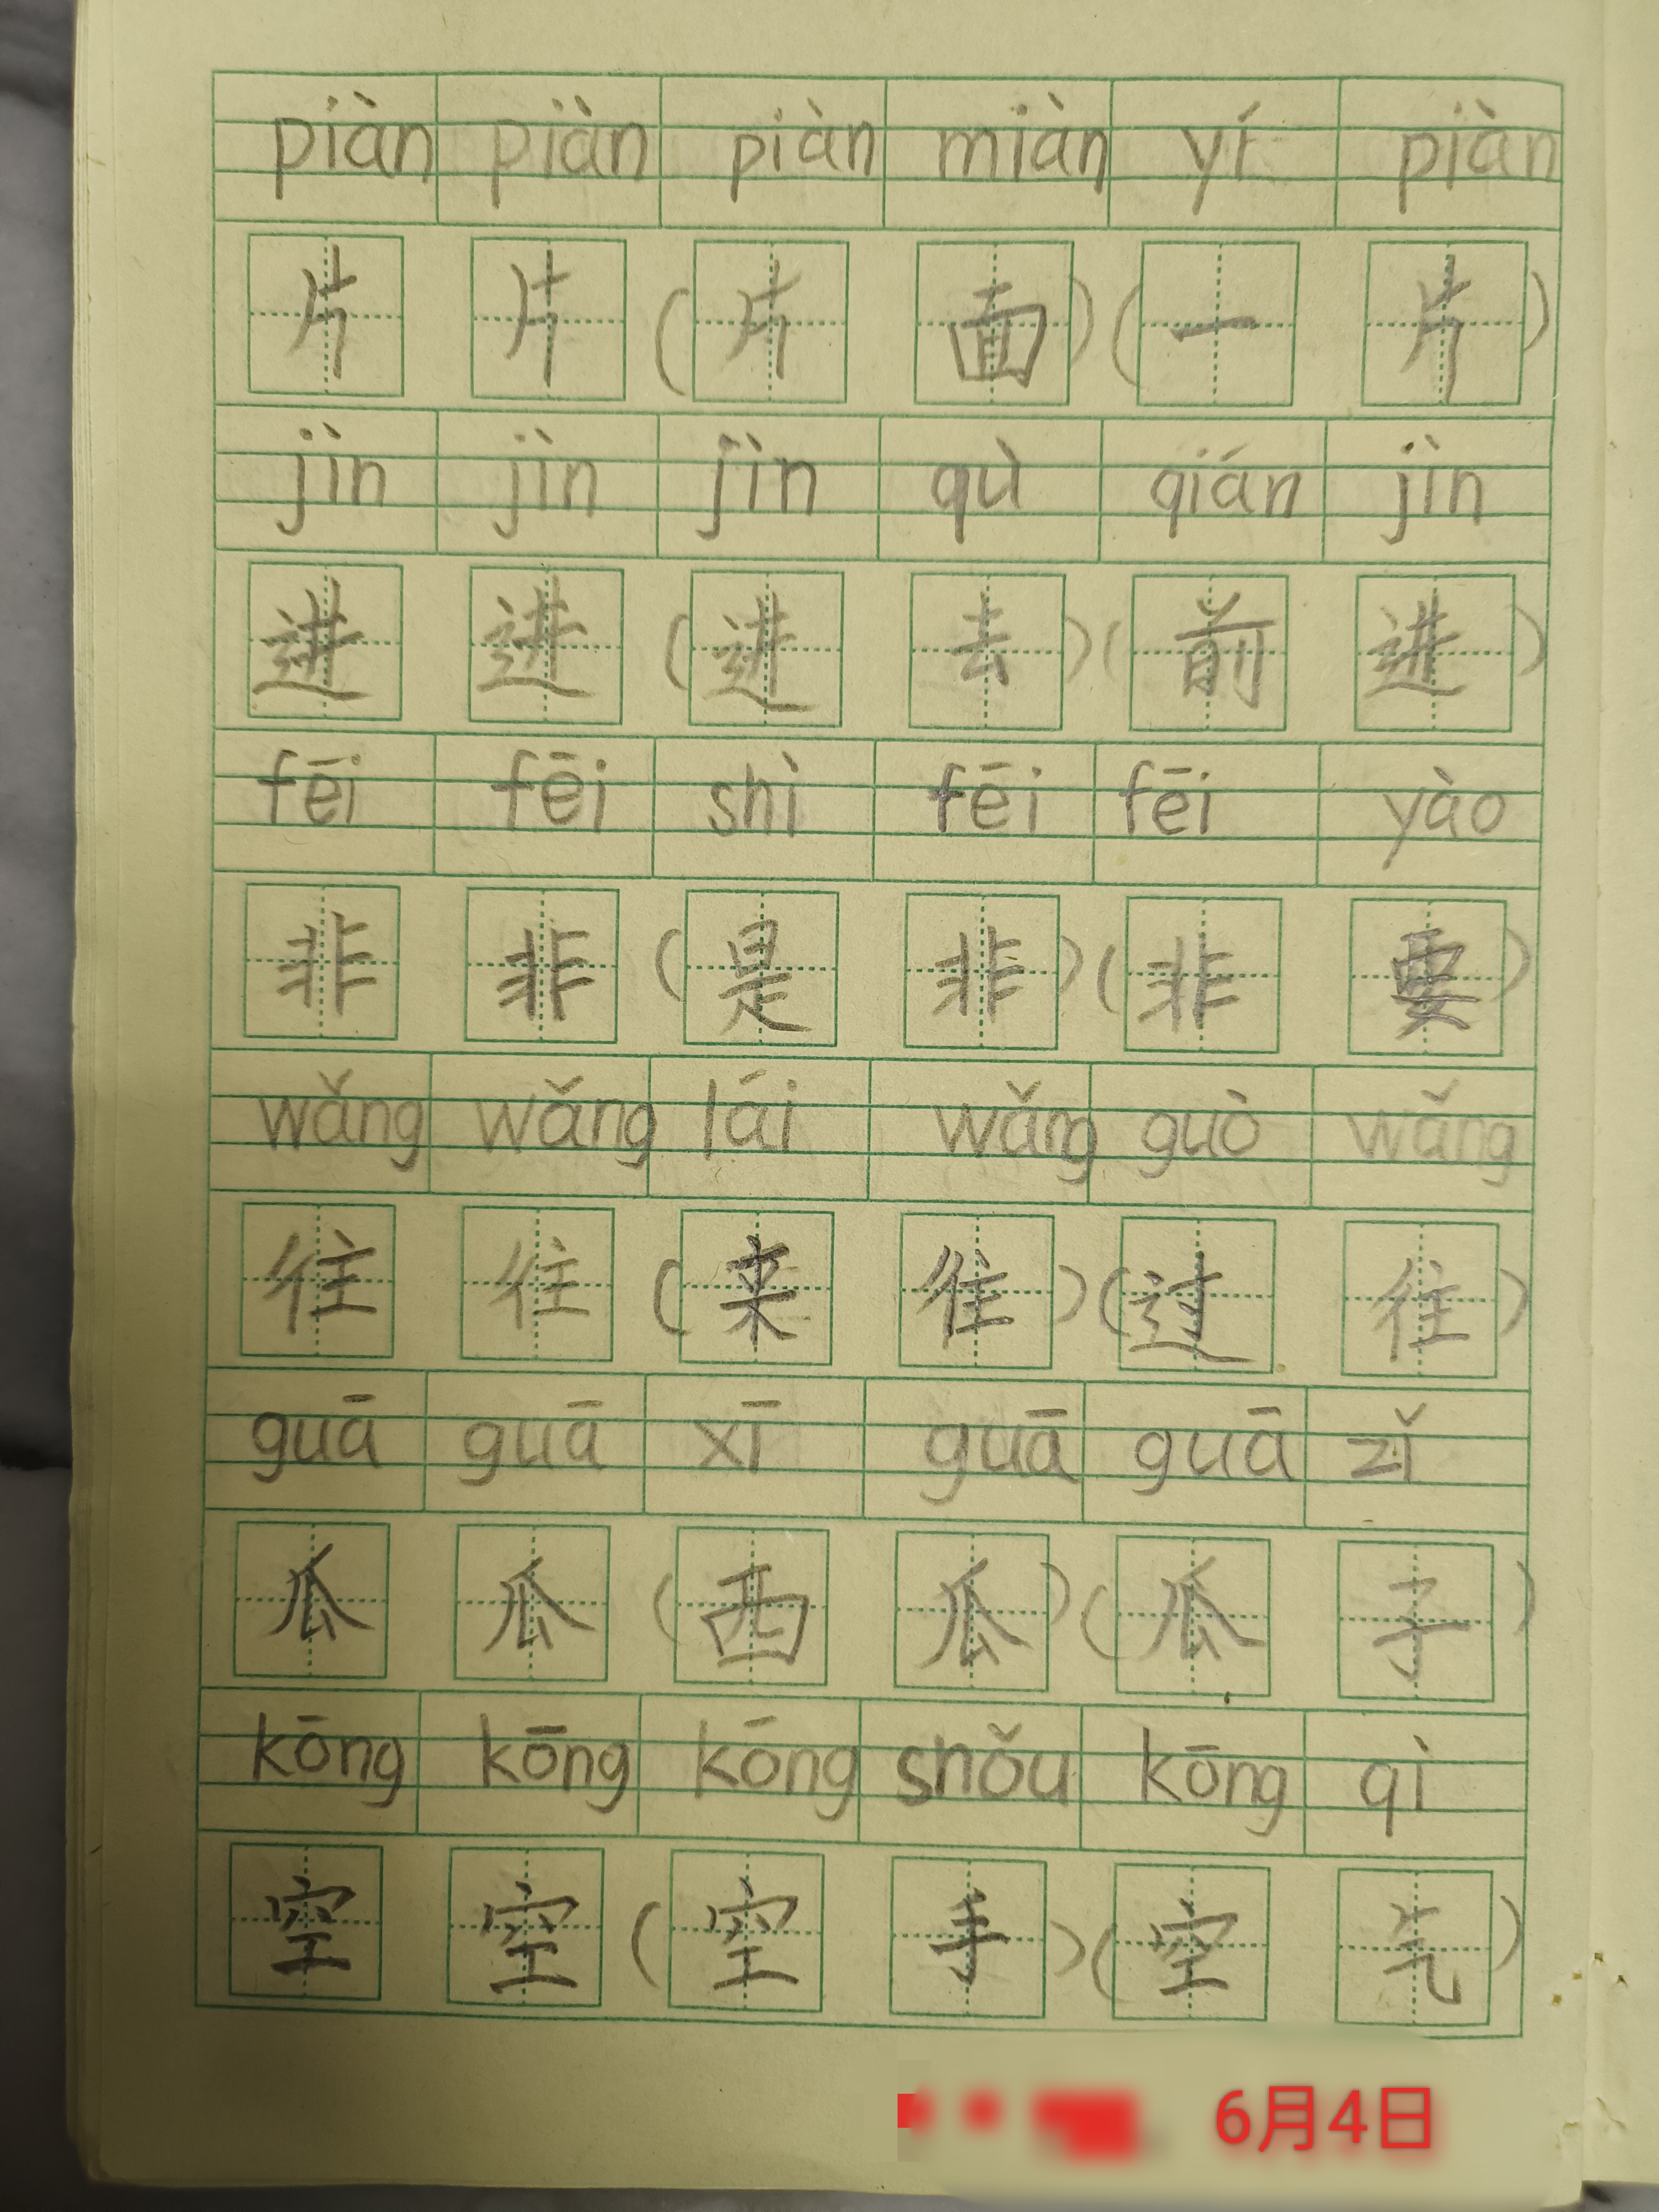 piàn piàn piàn miàn yí piàn
片 片 (片 面) (一 片)
jìn jìn jìn qù qián jìn
进 进 (进 去) (前 进)
fēi fēi shì fēi fēi yào
非 非 (是 非) (非 要)
wǎng wǎng lái wǎng guò wǎng
往 往 (来 往) (过 往)
guā guā xī guā guā zǐ
瓜 瓜 (西 瓜) (瓜 子)
kōng kōng kōng shǒu kōng qì
空 空 (空 手) (空 气)
6月4日